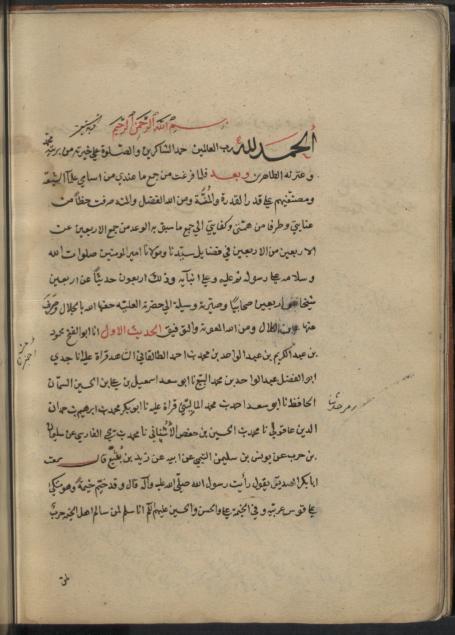 بسم الله الرحمن الرحيم
الحمد لله رب العالمين حمد الشاكرين والصلوة على خيرته من بريته محمد
وعترته الطاهرين وبعد فلما فرغت من جمع ما عندي من اسامي علماء الشيعة
ومصنفيهم على قدر القدرة والمنة ومن الله الفضل والمنة صرفت حظا من
عنايتي وطرفا من همتي وكفايتي الى جمع ما سبق به الوعد من جمع الاربعين عن
الاربعين من الاربعين في فضايل سيدنا ومولانا امير المؤمنين صلوات الله
وسلامه على رسوله ثم عليه وعلى ابنآيه وذلك اربعون حديثا عن اربعين
شيخا عن اربعين صحابيا وصيرته وسيلة الى حضرته العلية حفها الله بالجلال وصرف
عنها عين الكلال ومن الله المعونة والتوفيق الحديث الاول انا ابو الفتح محمود
بن عبد الكريم بن عبد الواحد بن محمد بن احمد الطالقاني قراة عليه انا جدي
ابو الفضل عبد الواحد بن محمد انا ابو سعد اسمعيل بن علي بن الحسين السمان
الحافظ نا ابو سعد احمد بن محمد الماليني قراة عليه نا ابو بكر محمد بن ابراهيم بن حمدان
الدير عاقولي نا محمد بن الحسين بن حفص الاشناني نا محمد بن يحيى الفارسي عن سليمان
بن حرب عن يونس بن سليمن التيمي عن ابيه عن زيد بن يثيع قال سمعت
ابا بكر الصديق يقول رأيت رسول الله صلى الله عليه وآله قال وقد خيم خيمة وهو متكئ
على قوس عربية وفي الخيمة علي والحسن والحسين عليهم السلم انا سلم لمن سالم اهل الخيمة حرب